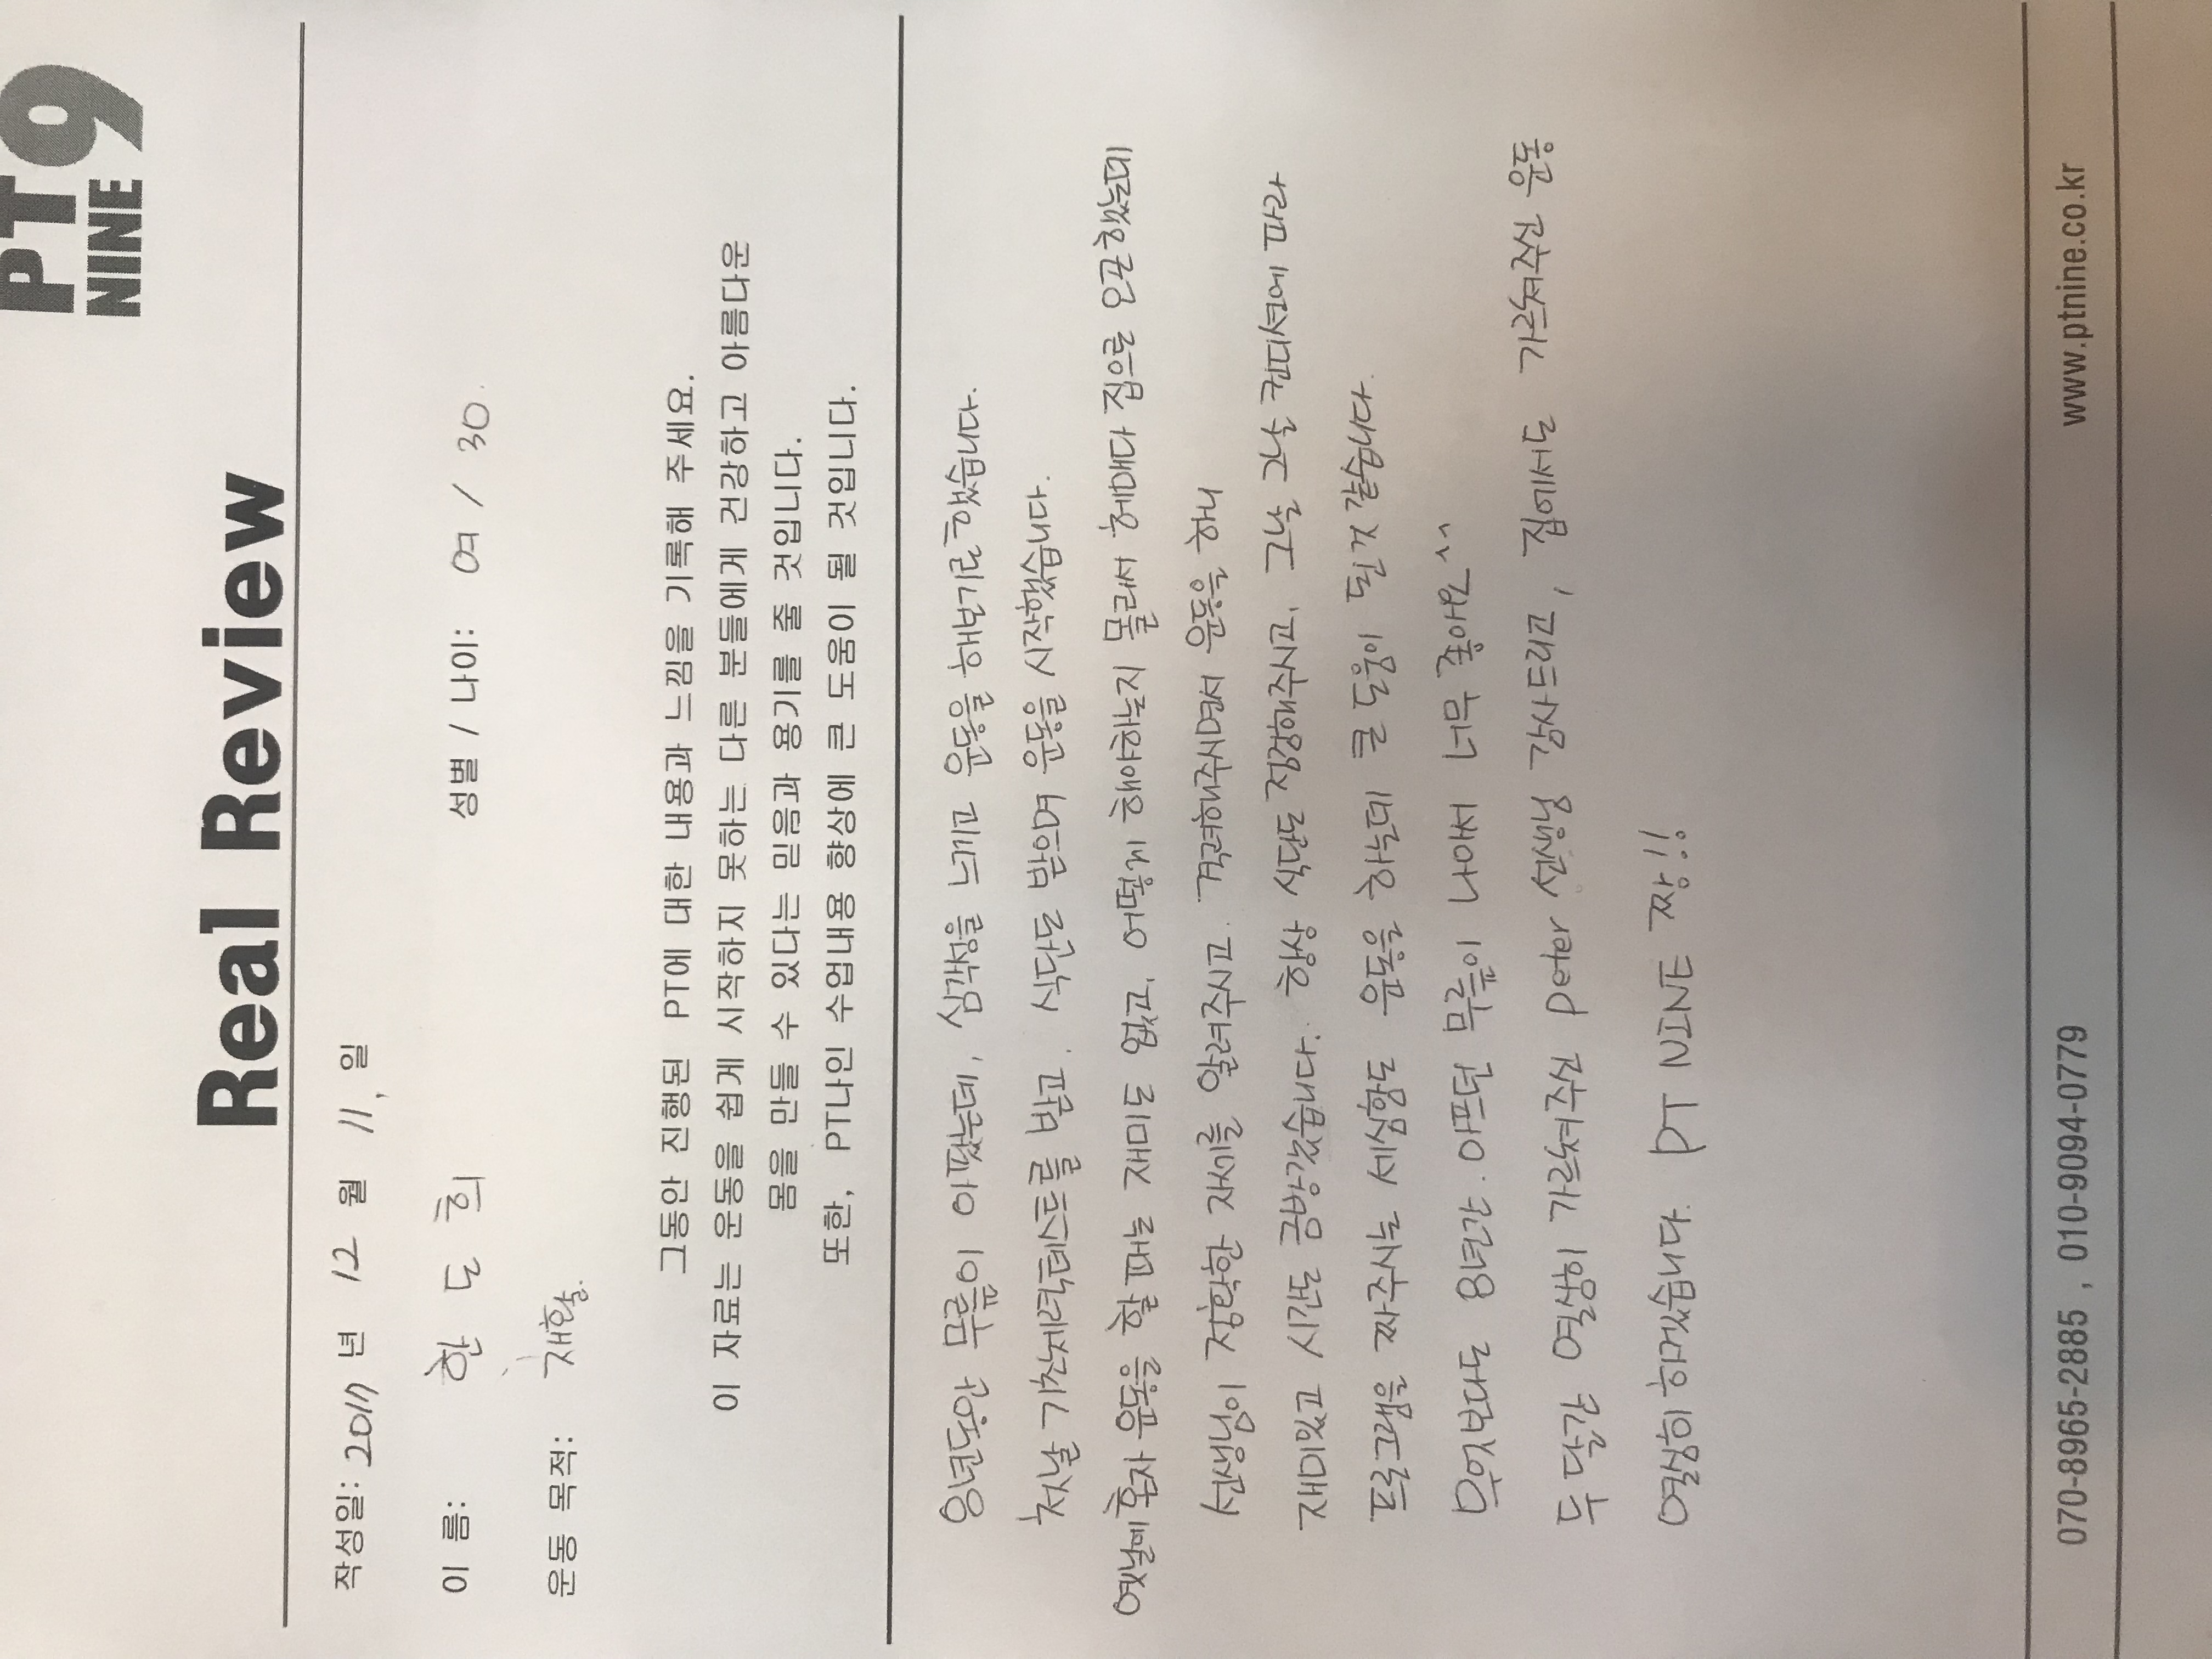 PT9
NINE
Real Review
작성일: 2011 년 12 월 11, 일
이 름: 한 도 희 성별 / 나이: 여 / 30.
운동 목적: 재활.
그동안 진행된 PT에 대한 내용과 느낌을 기록해 주세요.
이 자료는 운동을 쉽게 시작하지 못하는 다른 분들에게 건강하고 아름다운
몸을 만들 수 있다는 믿음과 용기를 줄 것입니다.
또한, PT나인 수업내용 향상에 큰 도움이 될 것입니다.
8년동안 무릎이 아팠는데, 심각성을 느끼고 운동을 해보기로 했습니다.
첫날 기초체력테스트를 받고, 식단도 받으며 운동을 시작했습니다.
옛날에 혼자 운동을 할 때는 재미도 없고, 어떻게 해야하는지 몰라서 헤매다 집으로 오곤 했었는데
선생님이 정확한 자세를 알려주시고, 격려해주시면서 운동을 하니
재미있고 시간도 금방갔습니다. 항상 식단도 점검해주시고, 그날 그날 컨디션에 따라
프로그램을 짜주시는 세심함도 운동을 하는데 큰 도움이 된거 같습니다.
무엇보다도 8년간 아프던 무릎이 나아서 너무 좋아요^^
두 달간 열심히 가르쳐주신 Peter 선생님 감사드리고, 집에서도 가르쳐주신 운동
열심히 하겠습니다. PT NINE 짱!!
070-8965-2885 , 010-9094-0779 www.ptnine.co.kr